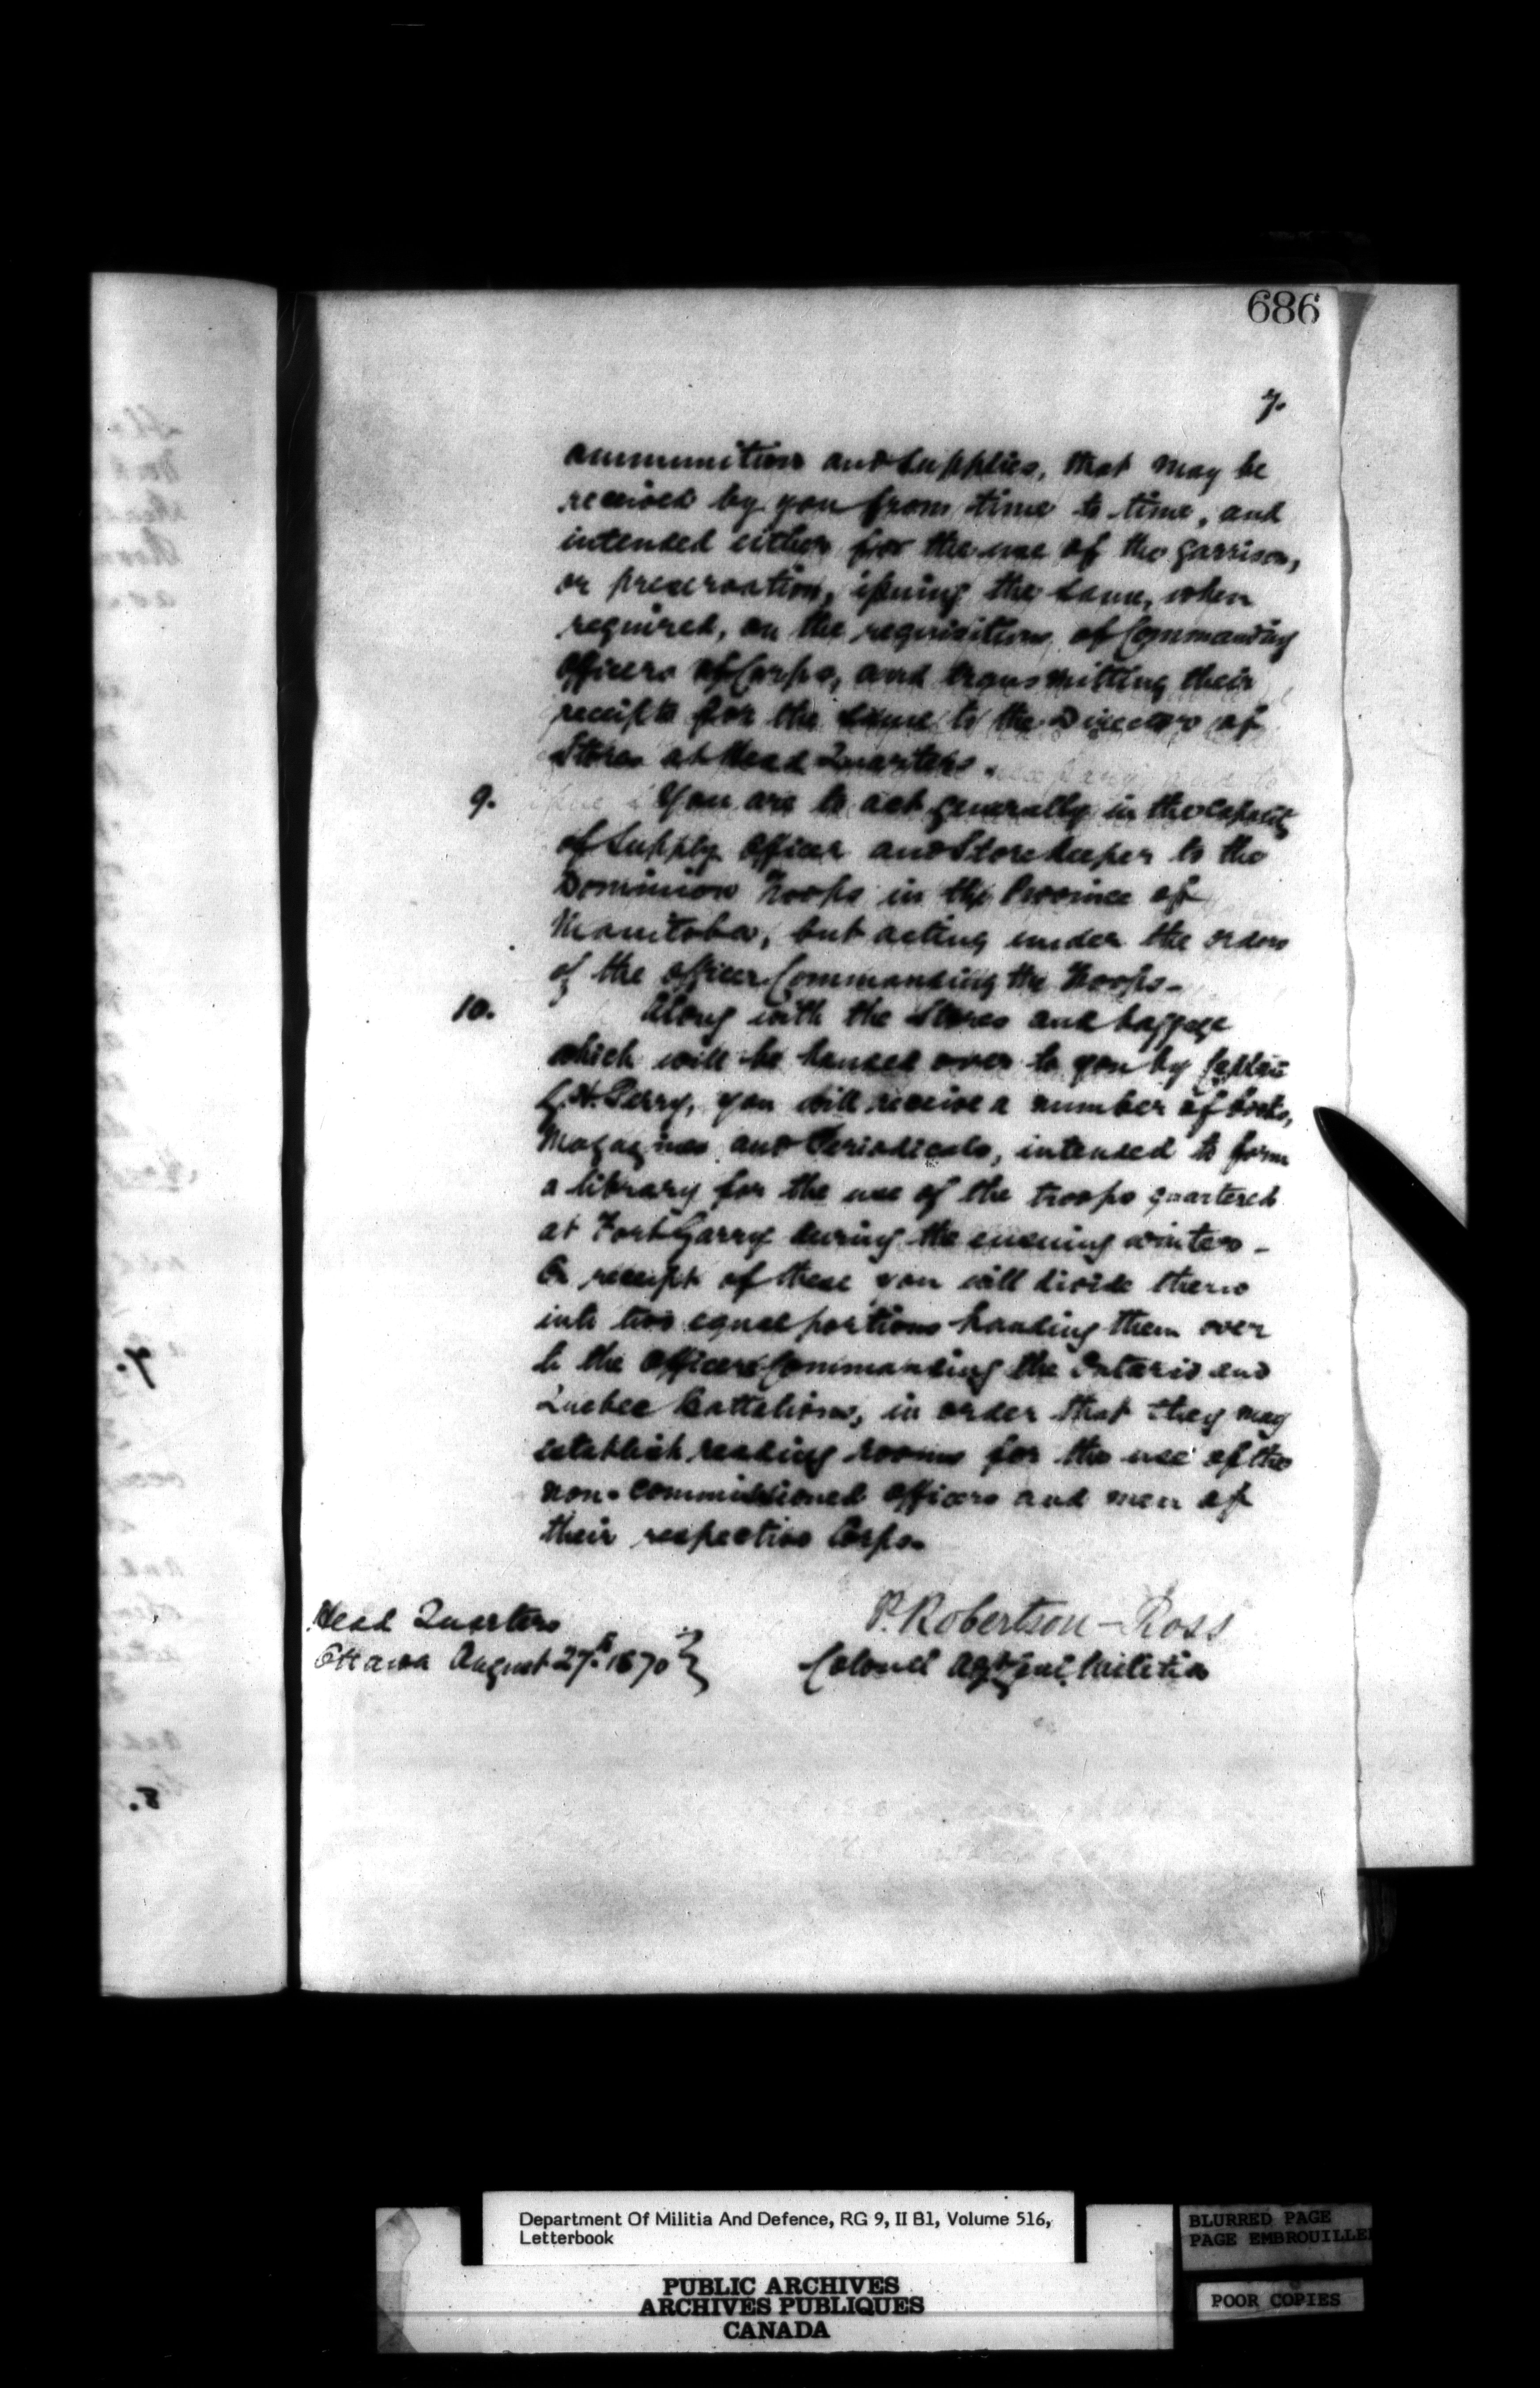 686
7.
ammunition and Supplies, that may be
received by you from time to time, and
intended either for the use of the garrison,
or preservation, issuing the same, when
required, on the requisitions of Commanding
Officers of Corps, and transmitting their
receipts for the same to the Director of
Stores at Head Quarters.
9. You are to act generally in the capacity
of Supply Officer and Storekeeper to the
Dominion Troops in the Province of
Manitoba, but acting under the orders
of the Officer Commanding the Troops.
10. Along with the Stores and baggage
which will be handed over to you by
Perry, you will receive a number of books,
Magazines and Periodicals, intended to form
a library for the use of the troops quartered
at Fort Garry during the ensuing winter.
On receipt of these you will divide them
into two equal portions handing them over
to the Officers Commanding the Ontario and
Quebec Battalions, in order that they may
establish reading rooms for the use of the
non-commissioned officers and men of
their respective Corps.
Head Quarters
Ottawa August 27th 1870
P. Robertson-Ross
Colonel Adjt Genl. Militia
7.
8.
Department Of Militia And Defence, RG 9, II B1, Volume 516,
Letterbook
PUBLIC ARCHIVES
ARCHIVES PUBLIQUES
CANADA
BLURRED PAGE
PAGE EMBROUILLE
POOR COPIES